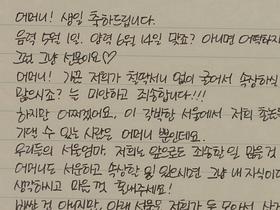 어머니! 생일 축하드립니다.
음력 5월 1일. 양력 6월 14일 맞죠? 아니면 어떡하지
그럼 그냥 선물이요♡
어머니! 가끔 저희가 철딱서니 없이 굴어서 속상하실
많으시죠? 늘 미안하고 죄송합니다!!!
하지만 어쩌겠어요, 이 각박한 서울에서 저희 촌놈들
기댈 수 있는 사람은 어머니 뿐인데요.
우리들의 서울엄마. 저희는 앞으로도 죄송할 일 많을 것
어머니도 서운하고 속상한 일 있으시면 그냥 내 자식이다
생각하시고 마음 것 혼내주세요!
비싼 건 아니지만, 아래 선물은 저희가 돈 모아서 사